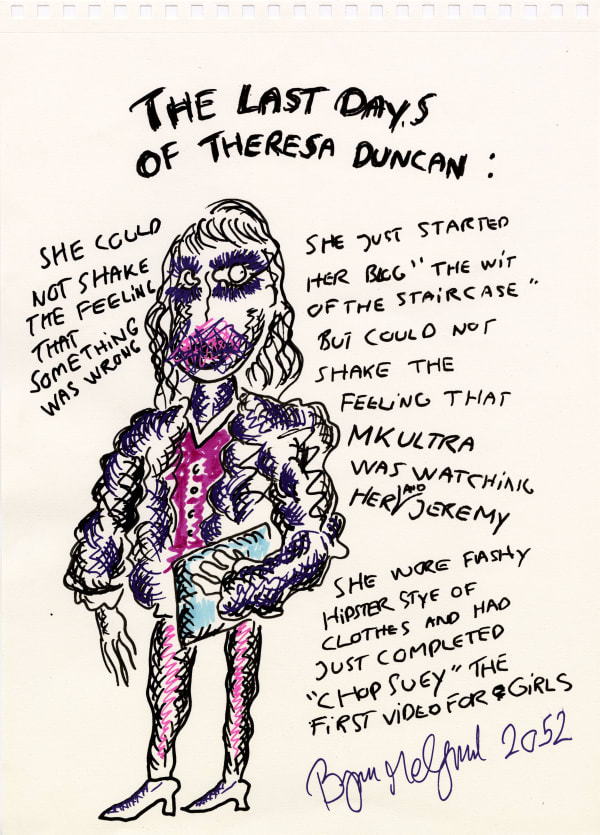 THE LAST DAYS
OF THERESA DUNCAN:
SHE COULD
NOT SHAKE
THE FEELING
THAT
SOMETHING
WAS WRONG
SHE JUST STARTED
HER BLOG "THE WIT
OF THE STAIRCASE"
BUT COULD NOT
SHAKE THE
FEELING THAT
MKULTRA
WAS WATCHING
HER AND JEREMY
SHE WORE FLASHY
HIPSTER STYE OF
CLOTHES AND HAD
JUST COMPLETED
"CHOP SUEY" THE
FIRST VIDEO FOR GIRLS
2052